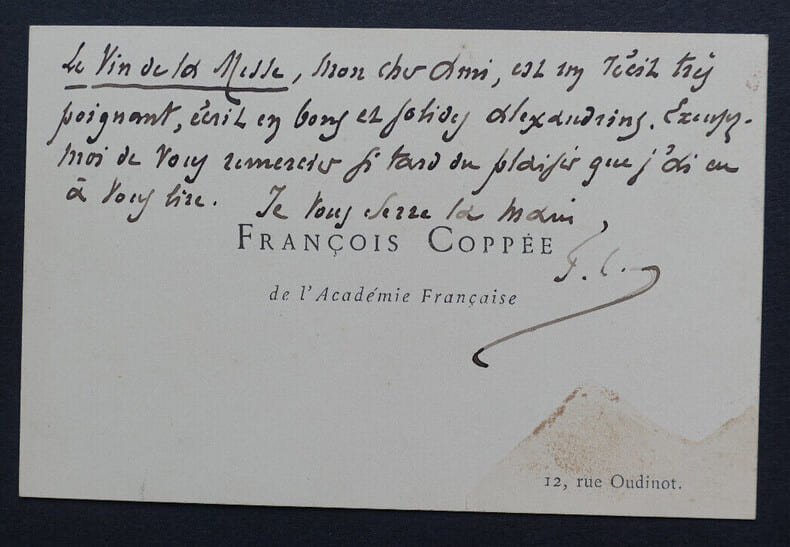 Le Vin de la Messe, mon cher Ami, est un récit très
poignant, écrit en bons et solides alexandrins. Excusez-
moi de vous remercier si tard du plaisir que j'ai eu
à vous lire. Je vous serre la main,
FRANÇOIS COPPÉE
F. C.
de l'Académie Française
12, rue Oudinot.